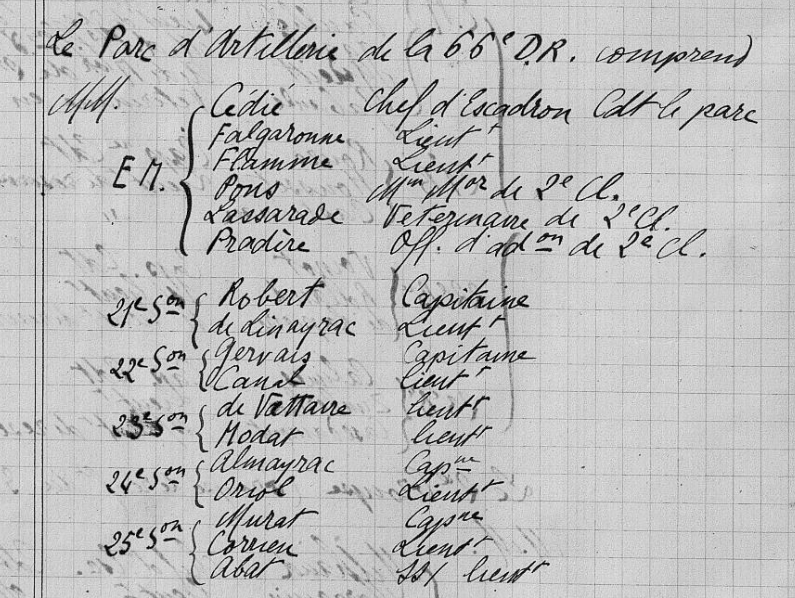 Le Parc d'Artillerie de la 66e D.R. comprend
MM. Cédié Chef d'Escadron Cdt le parc
Falgaronne Lieutt
Flamme Lieutt
E.M. Pons Min Mor de 2e Cl.
Lassarade Vétérinaire de 2e Cl.
Pradère Off. d'adon de 2e Cl.
21e Son Robert Capitaine
de Linayrac Lieutt
22e Son Gervais Capitaine
Canal lieutt
23e Son de Vattaire lieutt
Modat lieutt
24e Son Almayrac Capne
Oriol Lieutt
25e Son Murat Capne
Corrieu Lieutt
Abat lieutt